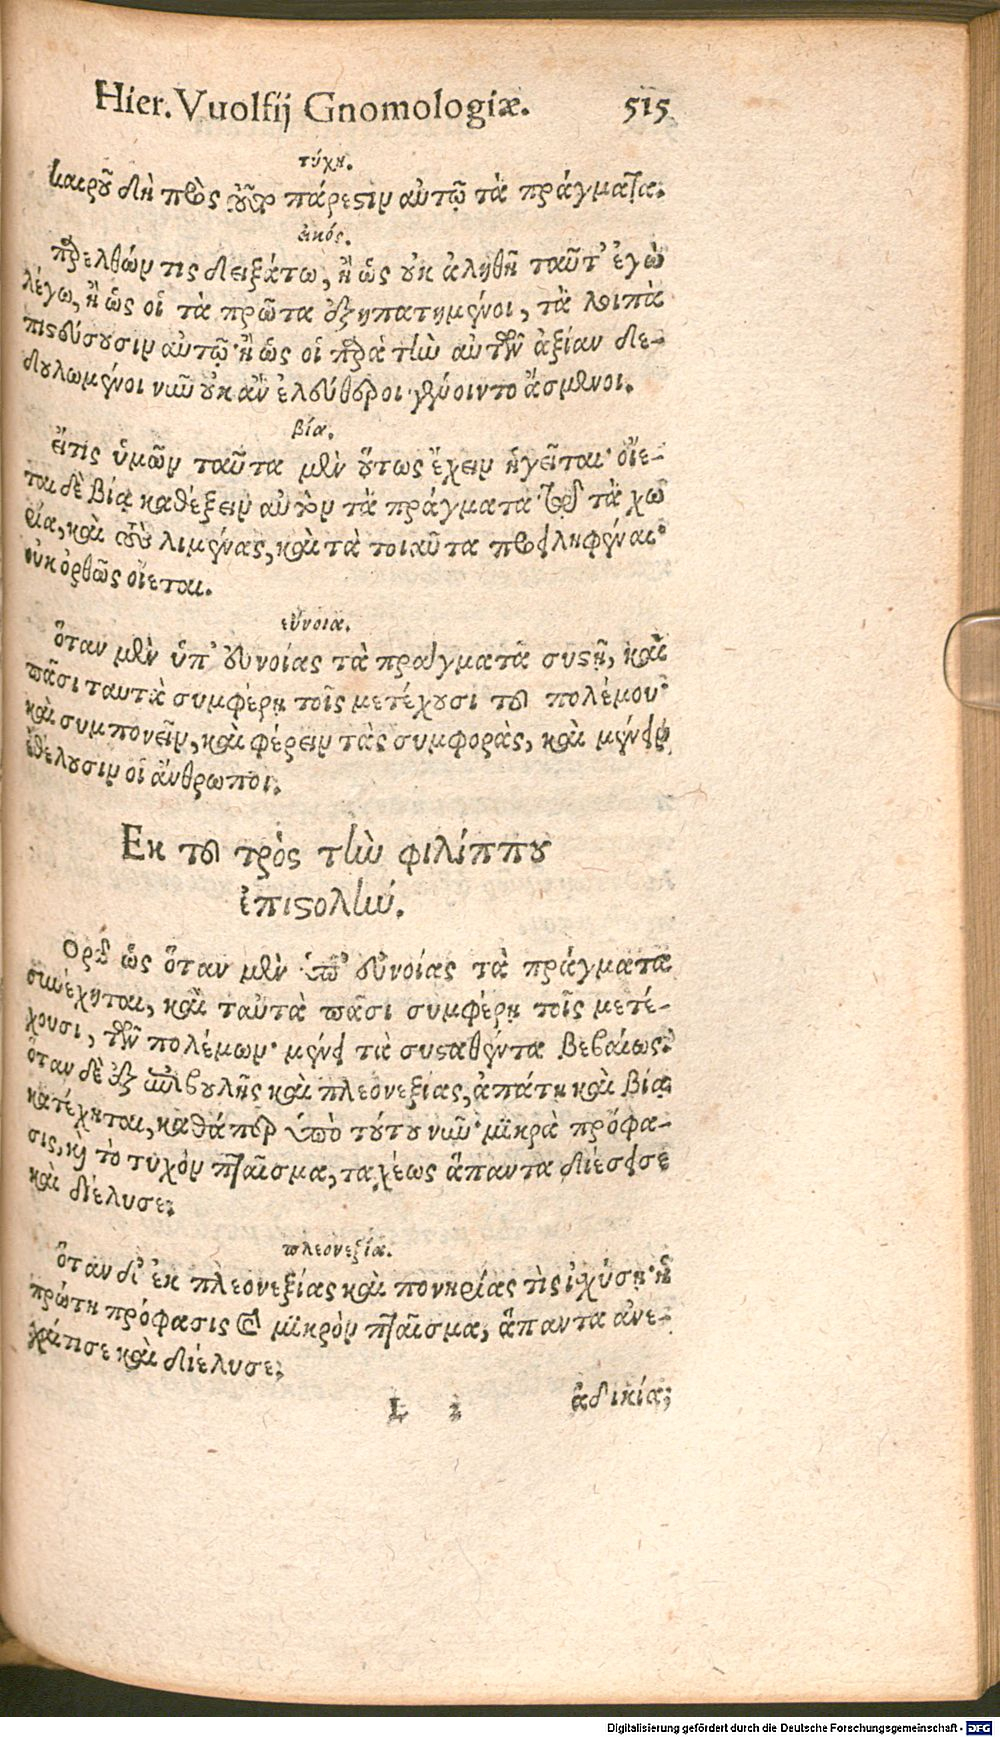 Hier. Vuolfij Gnomologiæ. 515
τύχη.
καιροῦ δὴ πρὸς οὖν πάρεστιν αὐτῷ τὰ πράγματα.
εἰκός.
παρελθών τις δειξάτω, ἢ ὡς οὐκ ἀληθῆ ταῦτ' ἐγὼ
λέγω, ἢ ὡς οἱ τὰ πρῶτα ἐξηπατημένοι, τὰ λοιπὰ
πιστεύσουσιν αὐτῷ· ἢ ὡς οἱ παρὰ τὴν αὐτῶν ἀξίαν δε-
δουλωμένοι νῦν οὐκ ἂν ἐλεύθεροι γένοιντο ἄσμενοι.
βία.
εἴτις ὑμῶν ταῦτα μὲν οὕτως ἔχειν ἡγεῖται· οἴε-
ται δὲ βίᾳ καθέξειν αὐτὸν τὰ πράγματα τῷ τὰ χω
ρία, καὶ τοὺς λιμένας, καὶ τὰ τοιαῦτα προειληφέναι·
οὐκ ὀρθῶς οἴεται.
εὔνοια.
ὅταν μὲν ὑπ' εὐνοίας τὰ πράγματα συστῇ, καὶ
πᾶσι ταυτὰ συμφέρῃ τοῖς μετέχουσι τοῦ πολέμου·
καὶ συμπονεῖν, καὶ φέρειν τὰς συμφορὰς, καὶ μένειν
ἐθέλουσιν οἱ ἄνθρωποι.
Εκ τοῦ πρὸς τὴν φιλίππου
ἐπιστολὴν.
Ορᾶ ὡς ὅταν μὲν ὑπ' εὐνοίας τὰ πράγματα
συνέχηται, καὶ ταὐτὰ πᾶσι συμφέρῃ τοῖς μετέ-
χουσι, τῶν πολέμων· μένει τὰ συσταθέντα βεβαίως·
ὅταν δὲ ἐξ ἐπιβουλῆς καὶ πλεονεξίας, ἀπάτῃ καὶ βίᾳ
κατέχηται, καθάπερ ὑπὸ τούτου νῦν· μικρὰ πρόφα-
σις, καὶ τὸ τυχὸν πταῖσμα, ταχέως ἅπαντα διέσεισε
καὶ διέλυσε.
πλεονεξία.
ὅταν δ' ἐκ πλεονεξίας καὶ πονηρίας τὶς ἰχύσῃ· ἡ
πρώτη πρόφασις καὶ μικρὸν πταῖσμα, ἅπαντα ἀνε-
χαίτισε καὶ διέλυσε.
L 2 ἀδικία;
Digitalisierung gefördert durch die Deutsche Forschungsgemeinschaft - DFG